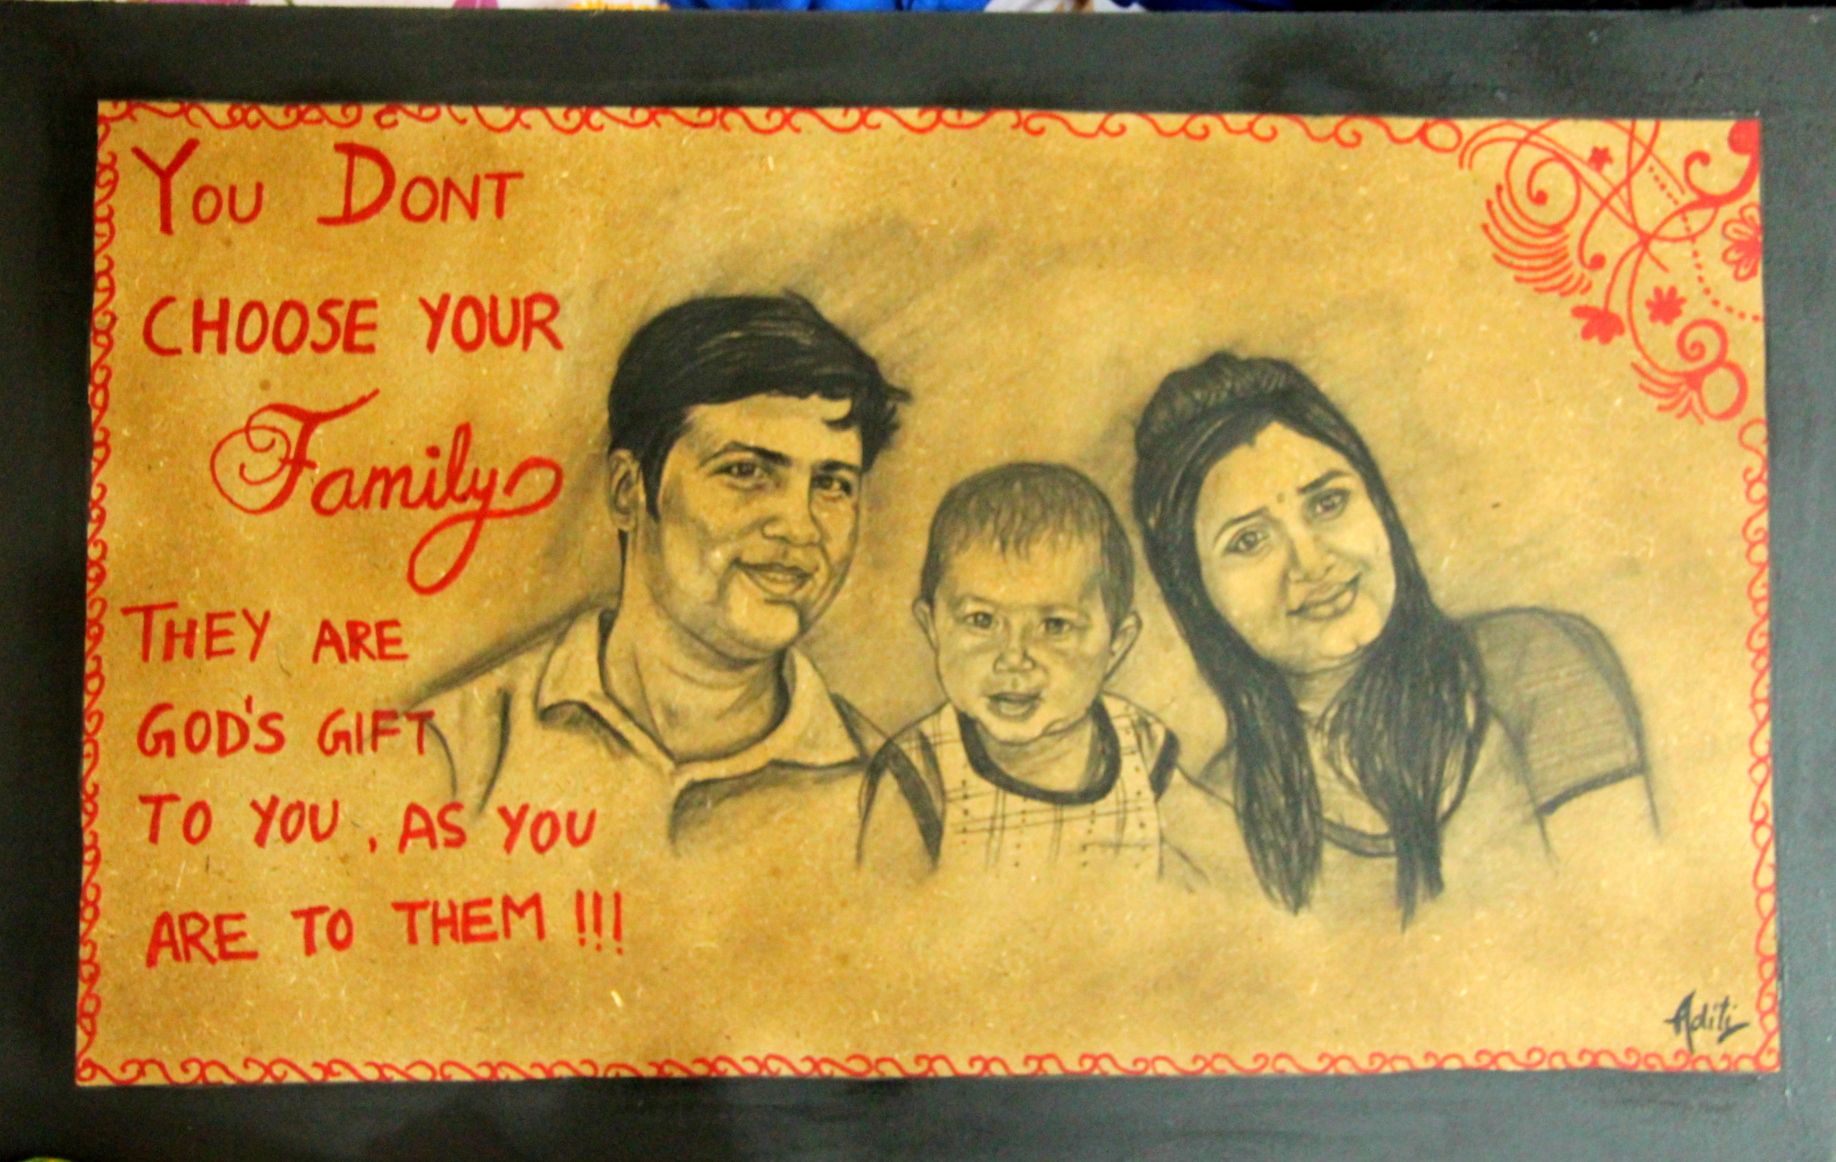 YOU DONT
CHOOSE YOUR
Family
THEY ARE
GOD'S GIFT
TO YOU, AS YOU
ARE TO THEM !!!
Aditi